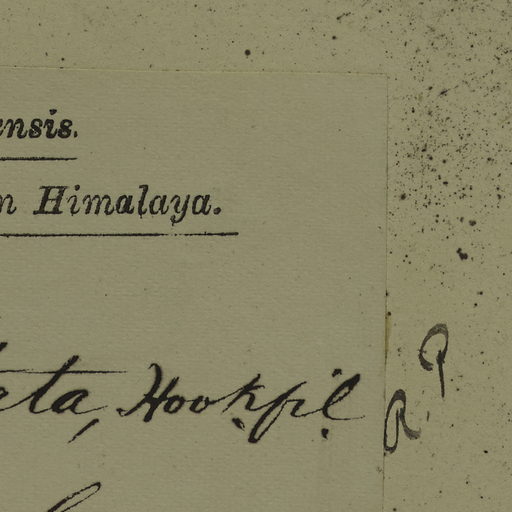 ensis.
n Himalaya.
eta, Hook.fil.